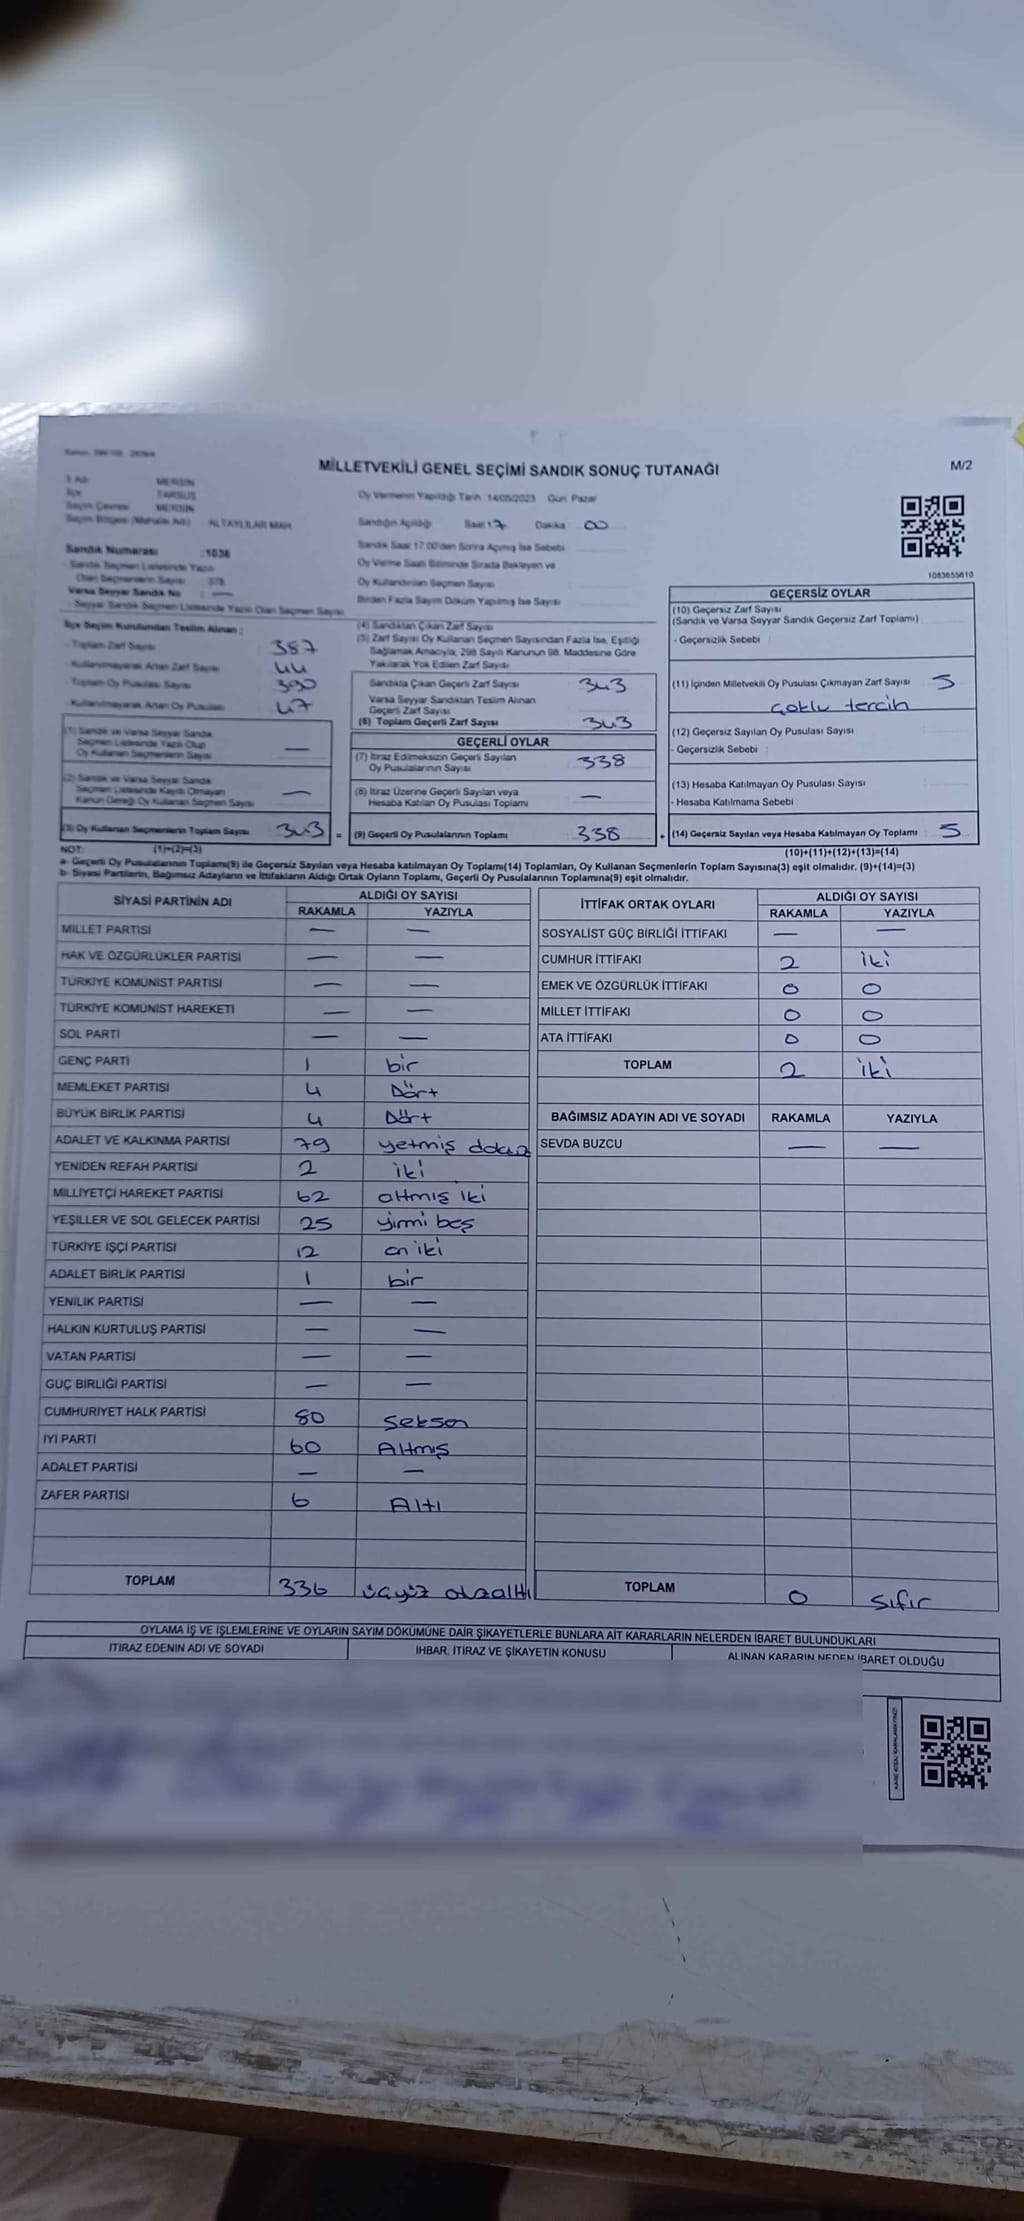 MİLLETVEKİLİ GENEL SEÇİMİ SANDIK SONUÇ TUTANAĞI
M/2
İl Adı MERSİN
İlçe TARSUS
Seçim Çevresi MERSİN
Seçim Bölgesi (Mahalle Adı) : ALTAYLILAR MAH
Oy Vermenin Yapıldığı Tarih :14/05/2023 Gün: Pazar
Sandığın Açıldığı Saat 17 Dakika 00
Sandık Saat 17:00'den Sonra Açılmış İse Sebebi
Oy Verme Saati Bitiminde Sırada Bekleyen ve
Oy Kullandırılan Seçmen Sayısı
Birden Fazla Sayım Döküm Yapılmış İse Sayısı
Sandık Numarası :1036
- Sandık Seçmen Listesinde Yazılı
Olan Seçmenlerin Sayısı : 378
Varsa Seyyar Sandık No : —
- Seyyar Sandık Seçmen Listesinde Yazılı Olan Seçmen Sayısı
1083655610
İlçe Seçim Kurulundan Teslim Alınan :
- Toplam Zarf Sayısı 387
- Kullanılmayarak Artan Zarf Sayısı 44
- Toplam Oy Pusulası Sayısı 390
- Kullanılmayarak Artan Oy Pusulası 47
(1) Sandık ve Varsa Seyyar Sandık
Seçmen Listesinde Yazılı Olup
Oy Kullanan Seçmenlerin Sayısı —
(2) Sandık ve Varsa Seyyar Sandık
Seçmen Listesinde Kayıtlı Olmayan
Kanun Gereği Oy Kullanan Seçmen Sayısı —
(3) Oy Kullanan Seçmenlerin Toplam Sayısı 343 =
(1)+(2)=(3)
(4) Sandıktan Çıkan Zarf Sayısı
(5) Zarf Sayısı Oy Kullanan Seçmen Sayısından Fazla İse, Eşitliği
Sağlamak Amacıyla, 298 Sayılı Kanunun 98. Maddesine Göre
Yakılarak Yok Edilen Zarf Sayısı
Sandıkta Çıkan Geçerli Zarf Sayısı 343
Varsa Seyyar Sandıktan Teslim Alınan
Geçerli Zarf Sayısı
(6) Toplam Geçerli Zarf Sayısı 343
GEÇERLİ OYLAR
(7) İtiraz Edilmeksizin Geçerli Sayılan
Oy Pusulalarının Sayısı 338
(8) İtiraz Üzerine Geçerli Sayılan veya
Hesaba Katılan Oy Pusulası Toplamı —
(9) Geçerli Oy Pusulalarının Toplamı 338 +
GEÇERSİZ OYLAR
(10) Geçersiz Zarf Sayısı
(Sandık ve Varsa Seyyar Sandık Geçersiz Zarf Toplamı)
- Geçersizlik Sebebi
(11) İçinden Milletvekili Oy Pusulası Çıkmayan Zarf Sayısı 5
çoklu tercih
(12) Geçersiz Sayılan Oy Pusulası Sayısı
- Geçersizlik Sebebi
(13) Hesaba Katılmayan Oy Pusulası Sayısı
- Hesaba Katılmama Sebebi
(14) Geçersiz Sayılan veya Hesaba Katılmayan Oy Toplamı 5
(10)+(11)+(12)+(13)=(14)
NOT:
a- Geçerli Oy Pusulalarının Toplamı(9) ile Geçersiz Sayılan veya Hesaba katılmayan Oy Toplamı(14) Toplamları, Oy Kullanan Seçmenlerin Toplam Sayısına(3) eşit olmalıdır. (9)+(14)=(3)
b- Siyasi Partilerin, Bağımsız Adayların ve İttifakların Aldığı Ortak Oyların Toplamı, Geçerli Oy Pusulalarının Toplamına(9) eşit olmalıdır.
SİYASİ PARTİNİN ADI ALDIĞI OY SAYISI
RAKAMLA YAZIYLA
MİLLET PARTİSİ — —
HAK VE ÖZGÜRLÜKLER PARTİSİ — —
TÜRKİYE KOMÜNİST PARTİSİ — —
TÜRKİYE KOMÜNİST HAREKETİ — —
SOL PARTİ — —
GENÇ PARTİ 1 bir
MEMLEKET PARTİSİ 4 Dört
BÜYÜK BİRLİK PARTİSİ 4 Dört
ADALET VE KALKINMA PARTİSİ 79 yetmiş dokuz
YENİDEN REFAH PARTİSİ 2 iki
MİLLİYETÇİ HAREKET PARTİSİ 62 altmış iki
YEŞİLLER VE SOL GELECEK PARTİSİ 25 yirmi beş
TÜRKİYE İŞÇİ PARTİSİ 12 on iki
ADALET BİRLİK PARTİSİ 1 bir
YENİLİK PARTİSİ — —
HALKIN KURTULUŞ PARTİSİ — —
VATAN PARTİSİ — —
GÜÇ BİRLİĞİ PARTİSİ — —
CUMHURİYET HALK PARTİSİ 80 Seksen
İYİ PARTİ 60 Altmış
ADALET PARTİSİ — —
ZAFER PARTİSİ 6 Altı
TOPLAM 336 üçyüz otuzaltı
İTTİFAK ORTAK OYLARI ALDIĞI OY SAYISI
RAKAMLA YAZIYLA
SOSYALİST GÜÇ BİRLİĞİ İTTİFAKI — —
CUMHUR İTTİFAKI 2 iki
EMEK VE ÖZGÜRLÜK İTTİFAKI 0 0
MİLLET İTTİFAKI 0 0
ATA İTTİFAKI 0 0
TOPLAM 2 iki
BAĞIMSIZ ADAYIN ADI VE SOYADI RAKAMLA YAZIYLA
SEVDA BUZCU — —
TOPLAM 0 Sıfır
OYLAMA İŞ VE İŞLEMLERİNE VE OYLARIN SAYIM DÖKÜMÜNE DAİR ŞİKAYETLERLE BUNLARA AİT KARARLARIN NELERDEN İBARET BULUNDUKLARI
İTİRAZ EDENİN ADI VE SOYADI
İHBAR, İTİRAZ VE ŞİKAYETİN KONUSU
ALINAN KARARIN NEDEN İBARET OLDUĞU